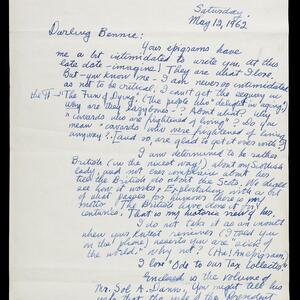 Saturday
May 12, 1962
Darling Bennie:
Your epigrams have
me a bit intimidated to write you at this
late date - imagine! They are what I love.
But - you know me - I am never so intimidated
as not to be critical. I can't get the very
"The Fun of Dying" (The people who delight in aging?
why are they ? About what? Why
"cowards who are frightened of living? I do you
mean "cowards" who were frightened of living
anyway? (and, so are glad to get over with?)
I am determined to be rather
British (in the nicest way!) about my Scottish
lady, and not even complain about her
till the British do about the States. We shall
see how it works. Exploitation with a bit
of that for happiness these is my
motto. The British have done it for
centuries. That is my historic
I do not take it as an insult
when your letter (I told you
on the phone) asserts you are "sick of
the world," why not? (Ha! An epigram)
I love "Ode to our Tax Collector"
Enclosed is the volume of
Mr. Sol A. Dann. You might tell his
wife that the wife of the